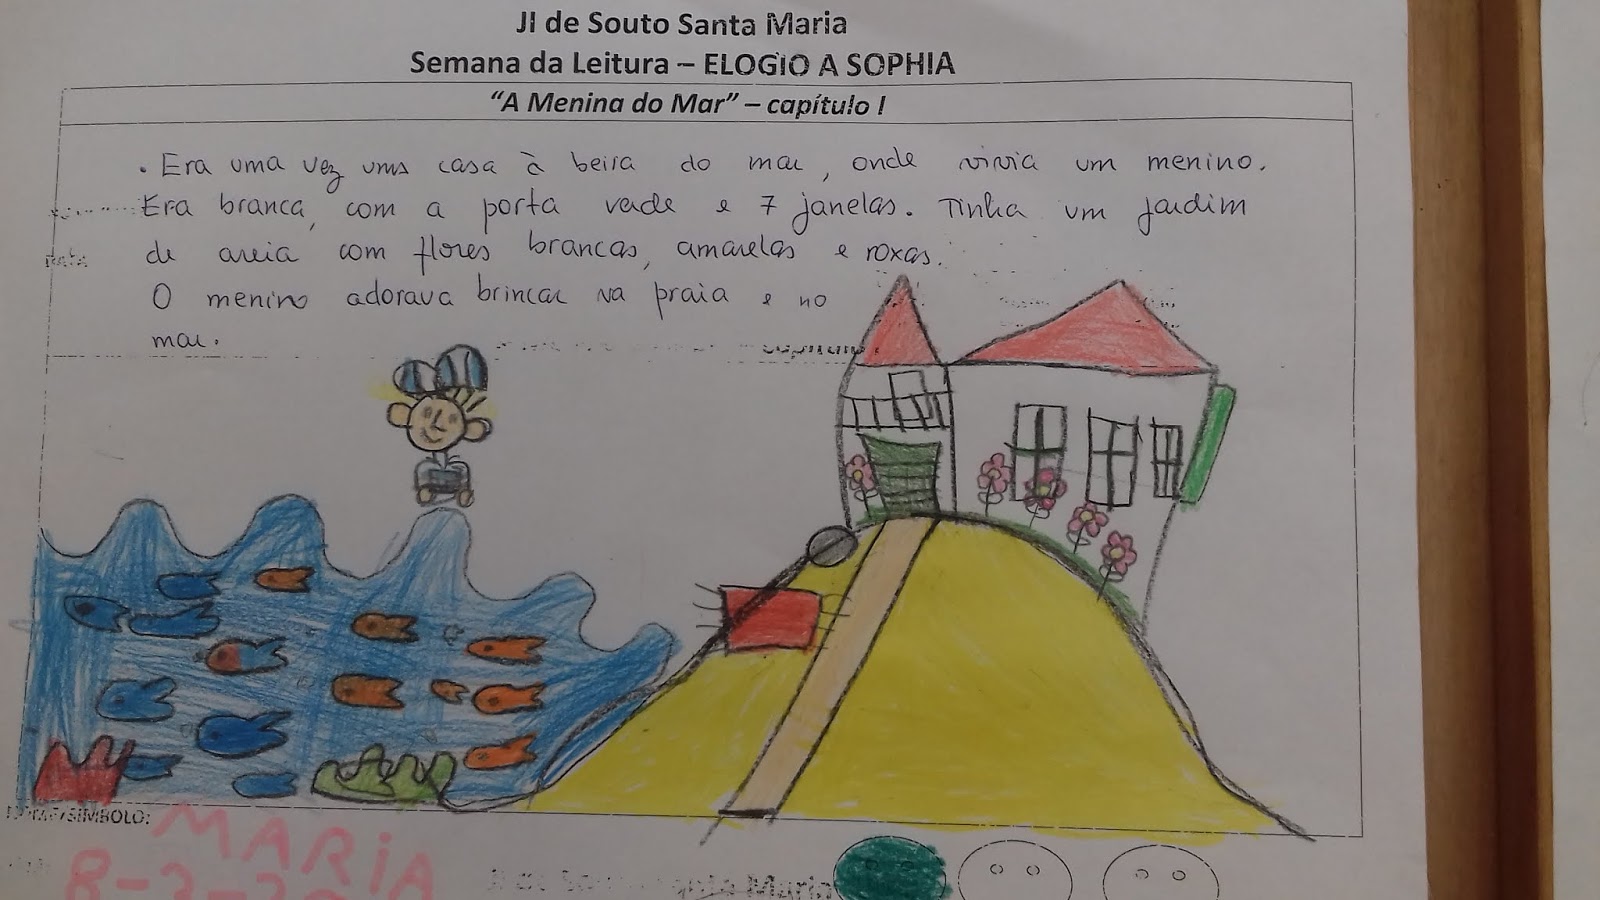 JI de Souto Santa Maria
Semana da Leitura – ELOGIO A SOPHIA
“A Menina do Mar” – capítulo I
. Era uma vez uma casa à beira do mar, onde vivia um menino.
Era branca, com a porta verde e 7 janelas. Tinha um jardim
de areia com flores brancas, amarelas e roxas.
O menino adorava brincar na praia e no
mar.
SÍMBOLO:
MARIA